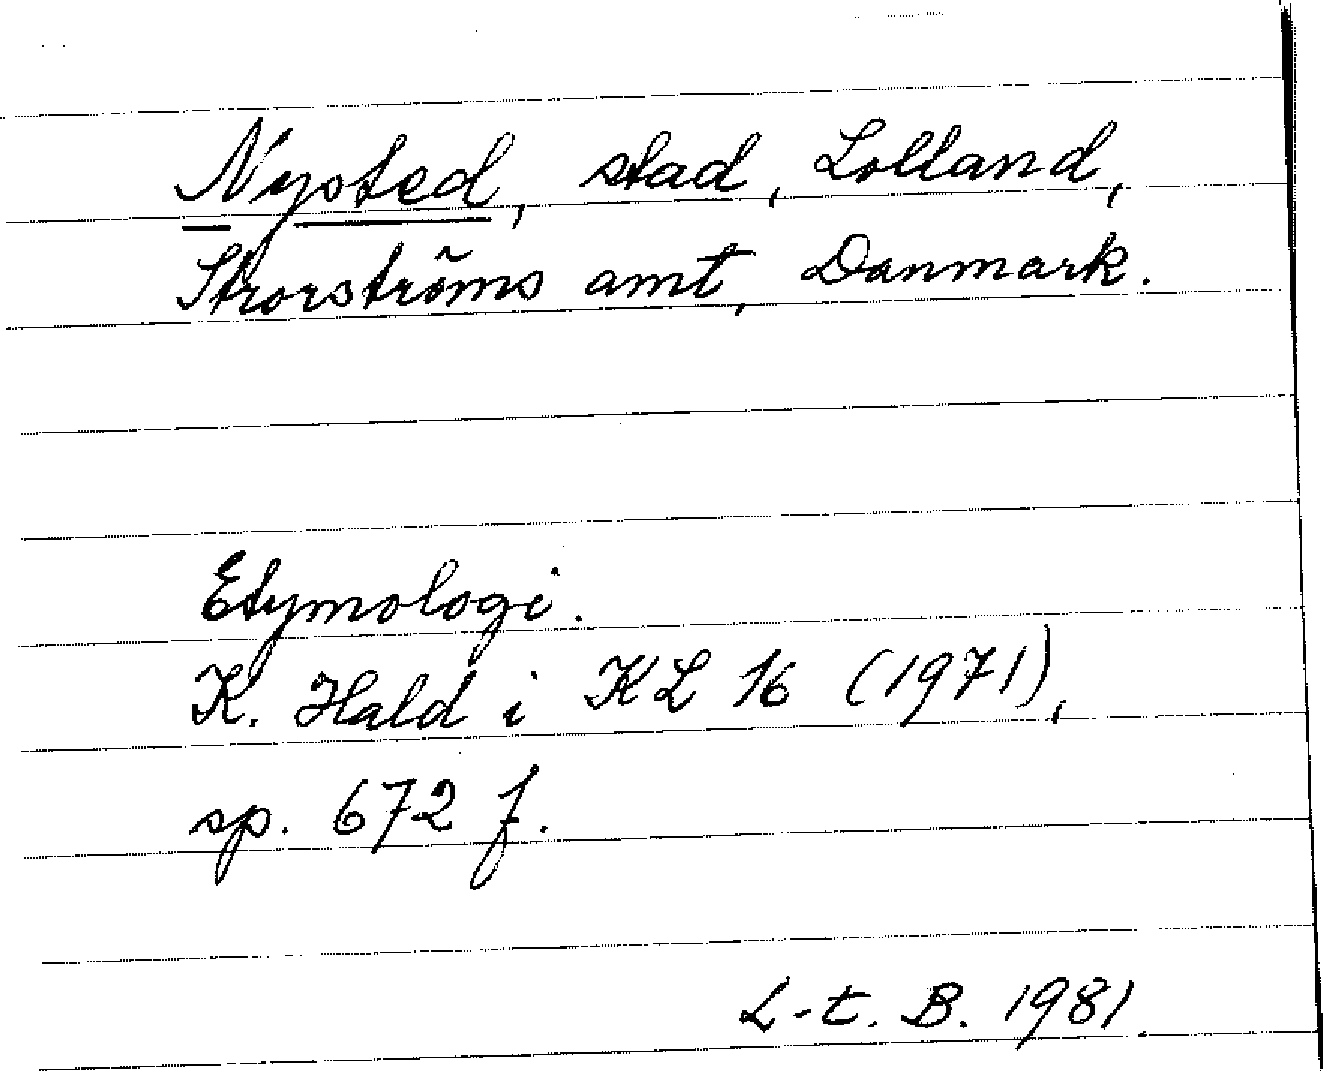 Nysted, stad, Lolland,
Strorströms amt, Danmark.
Etymologi.
K. Hald i KL 16 (1971),
sp. 672 f.
L-t. B. 1981